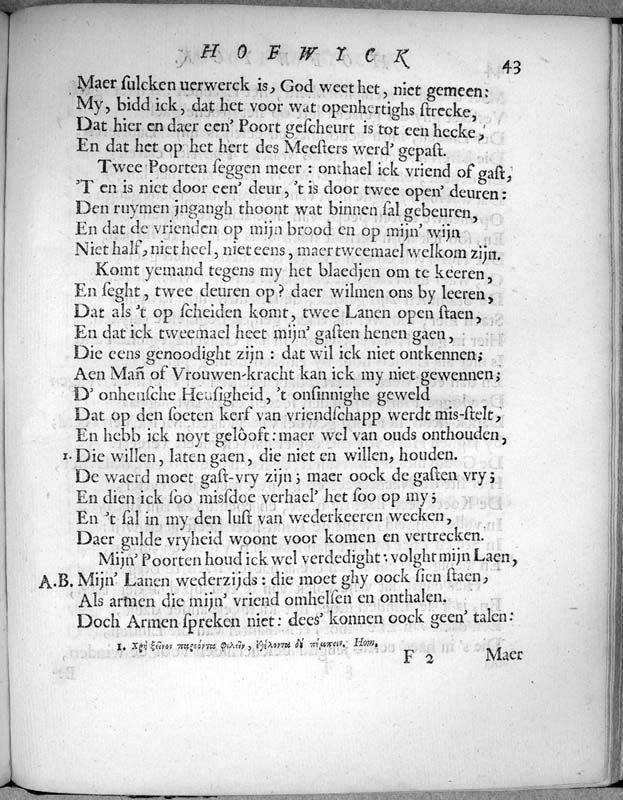 HOFWYCK
43
Maer ſulcken uerwerck is, God weet het, niet gemeen:
My, bidd ick, dat het voor wat openhertighs ſtrecke,
Dat hier en daer een' Poort geſcheurt is tot een hecke,
En dat het op het hert des Meeſters werd' gepaſt.
Twee Poorten ſeggen meer: onthael ick vriend of gaſt,
'T en is niet door een' deur, 't is door twee open' deuren:
Den ruymen jngangh thoont wat binnen ſal gebeuren,
En dat de vrienden op mijn brood en op mijn' wijn
Niet half, niet heel, niet eens, maer tweemael welkom zijn.
Komt yemand tegens my het blaedjen om te keeren,
En ſeght, twee deuren op? daer wilmen ons by leeren,
Dat als 't op ſcheiden komt, twee Lanen open ſtaen,
En dat ick tweemael heet mijn' gaſten henen gaen,
Die eens genoodight zijn: dat wil ick niet ontkennen;
Aen Mañ of Vrouwen-kracht kan ick my niet gewennen;
D' onhenſche Heuſigheid, 't onſinnighe geweld
Dat op den ſoeten kerf van vriendſchapp werdt mis-ſtelt,
En hebb ick noyt gelôoft: maer wel van ouds onthouden,
1. Die willen, laten gaen, die niet en willen, houden.
De waerd moet gaſt-vry zijn; maer oock de gaſten vry;
En dien ick ſoo misſdoe verhael' het ſoo op my;
En 't ſal in my den luſt van wederkeeren wecken,
Daer gulde vryheid woont voor komen en vertrecken.
Mijn' Poorten houd ick wel verdedight: volght mijn Laen,
A.B. Mijn' Lanen wederzijds: die moet ghy oock ſien ſtaen,
Als armen die mijn' vriend omhelſen en onthalen.
Doch Armen ſpreken niet: dees' konnen oock geen' talen:
1. Χρὴ ξεῖνον παρεόντα φιλεῖν, ἐθέλοντα δὲ πέμπειν. Hom.
F 2
Maer